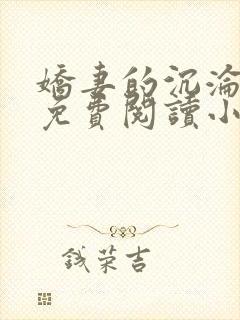 嬌妻的沉淪
免費閱讀小
錢榮吉